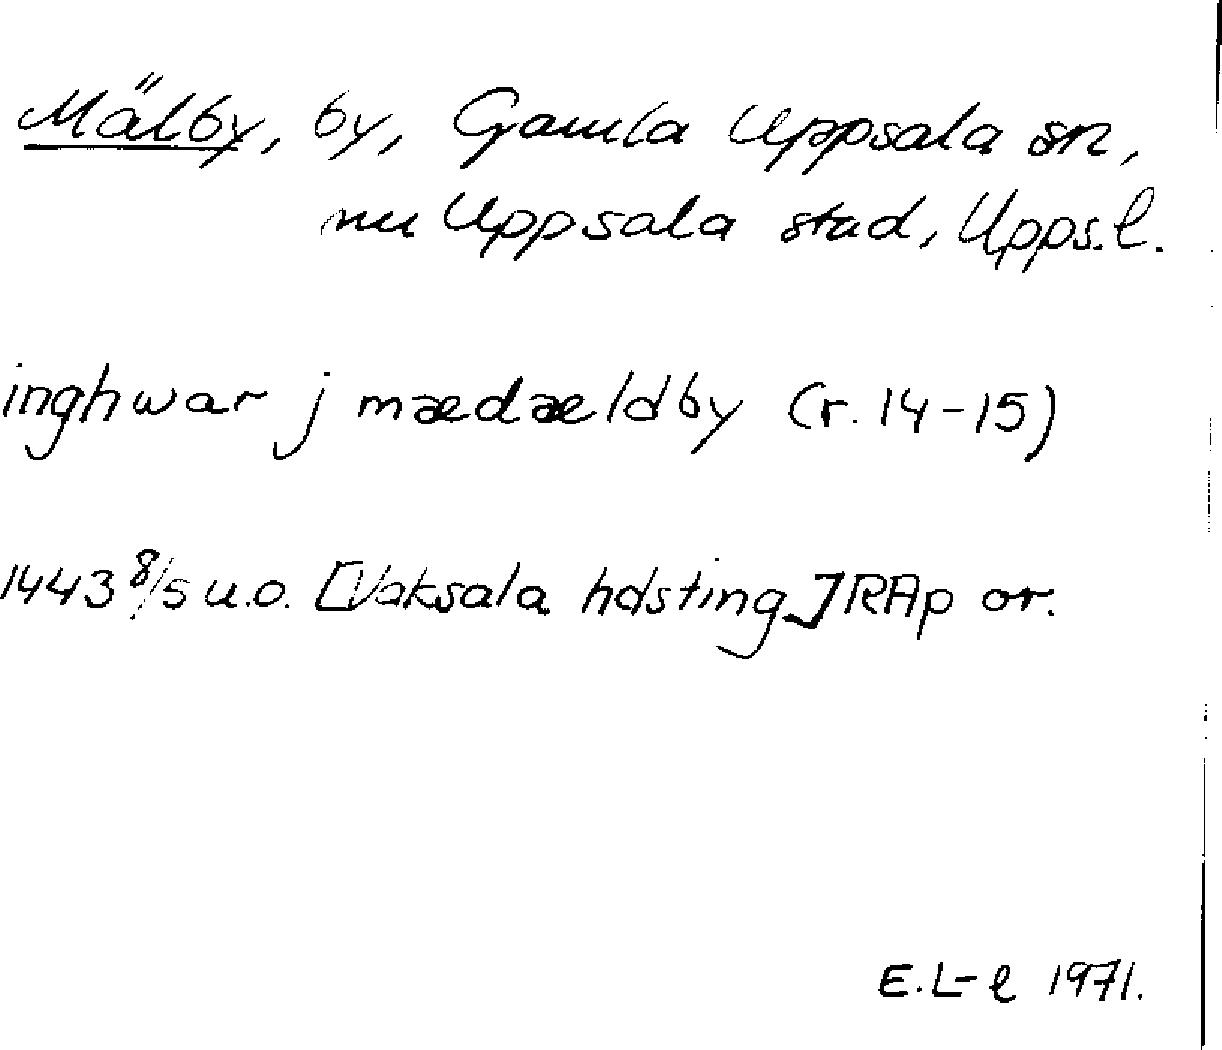 Mälby, by, Gamla Uppsala sn,
nu Uppsala stad, Upps.l.
inghwar j mædældby (r. 14-15)
1443 8/5 u.o. [Vaksala hdsting] RAp or.
E.L-l 1971.